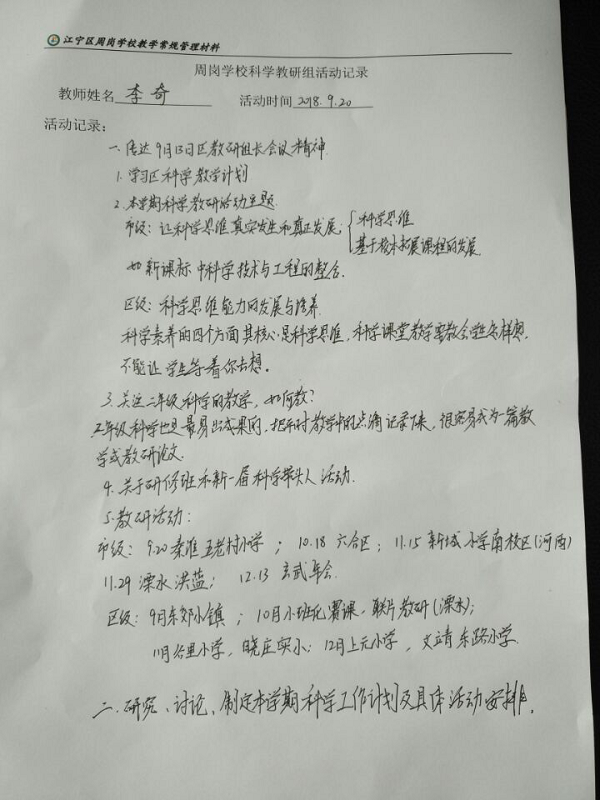 江宁区周岗学校教学常规管理材料
周岗学校科学教研组活动记录
教师姓名 李奇 活动时间 2018.9.20
活动记录：
一、传达9月13日区教研组长会议精神
1. 学习区科学教学计划
2. 本学期科学教研活动主题
市级：让科学思维真实发生和真正发展 { 科学思维
基于校本拓展课程的发展
如新课标中科学技术与工程的整合.
区级：科学思维能力的发展与培养
科学素养的四个方面其核心是科学思维，科学课堂教学要教会学生怎样想，
不能让学生等着你去想。
3. 关注二年级科学的教学，如何教？
二年级科学也是最易出成果的，把平时教学中的点滴记录下来，很容易成为一篇教
学或教研论文.
4. 关于研修班和新一届科学带头人活动.
5. 教研活动：
市级：9.20 秦淮五老村小学；10.18 六合区；11.15 新城小学南校区(河西)
11.29 溧水洪蓝；12.13 玄武年会.
区级：9月东郊小镇；10月小班化赛课，联片教研(溧水)；
11月谷里小学，晓庄实小；12月上元小学，文靖东路小学.
二、研究、讨论、制定本学期科学工作计划及具体活动安排。